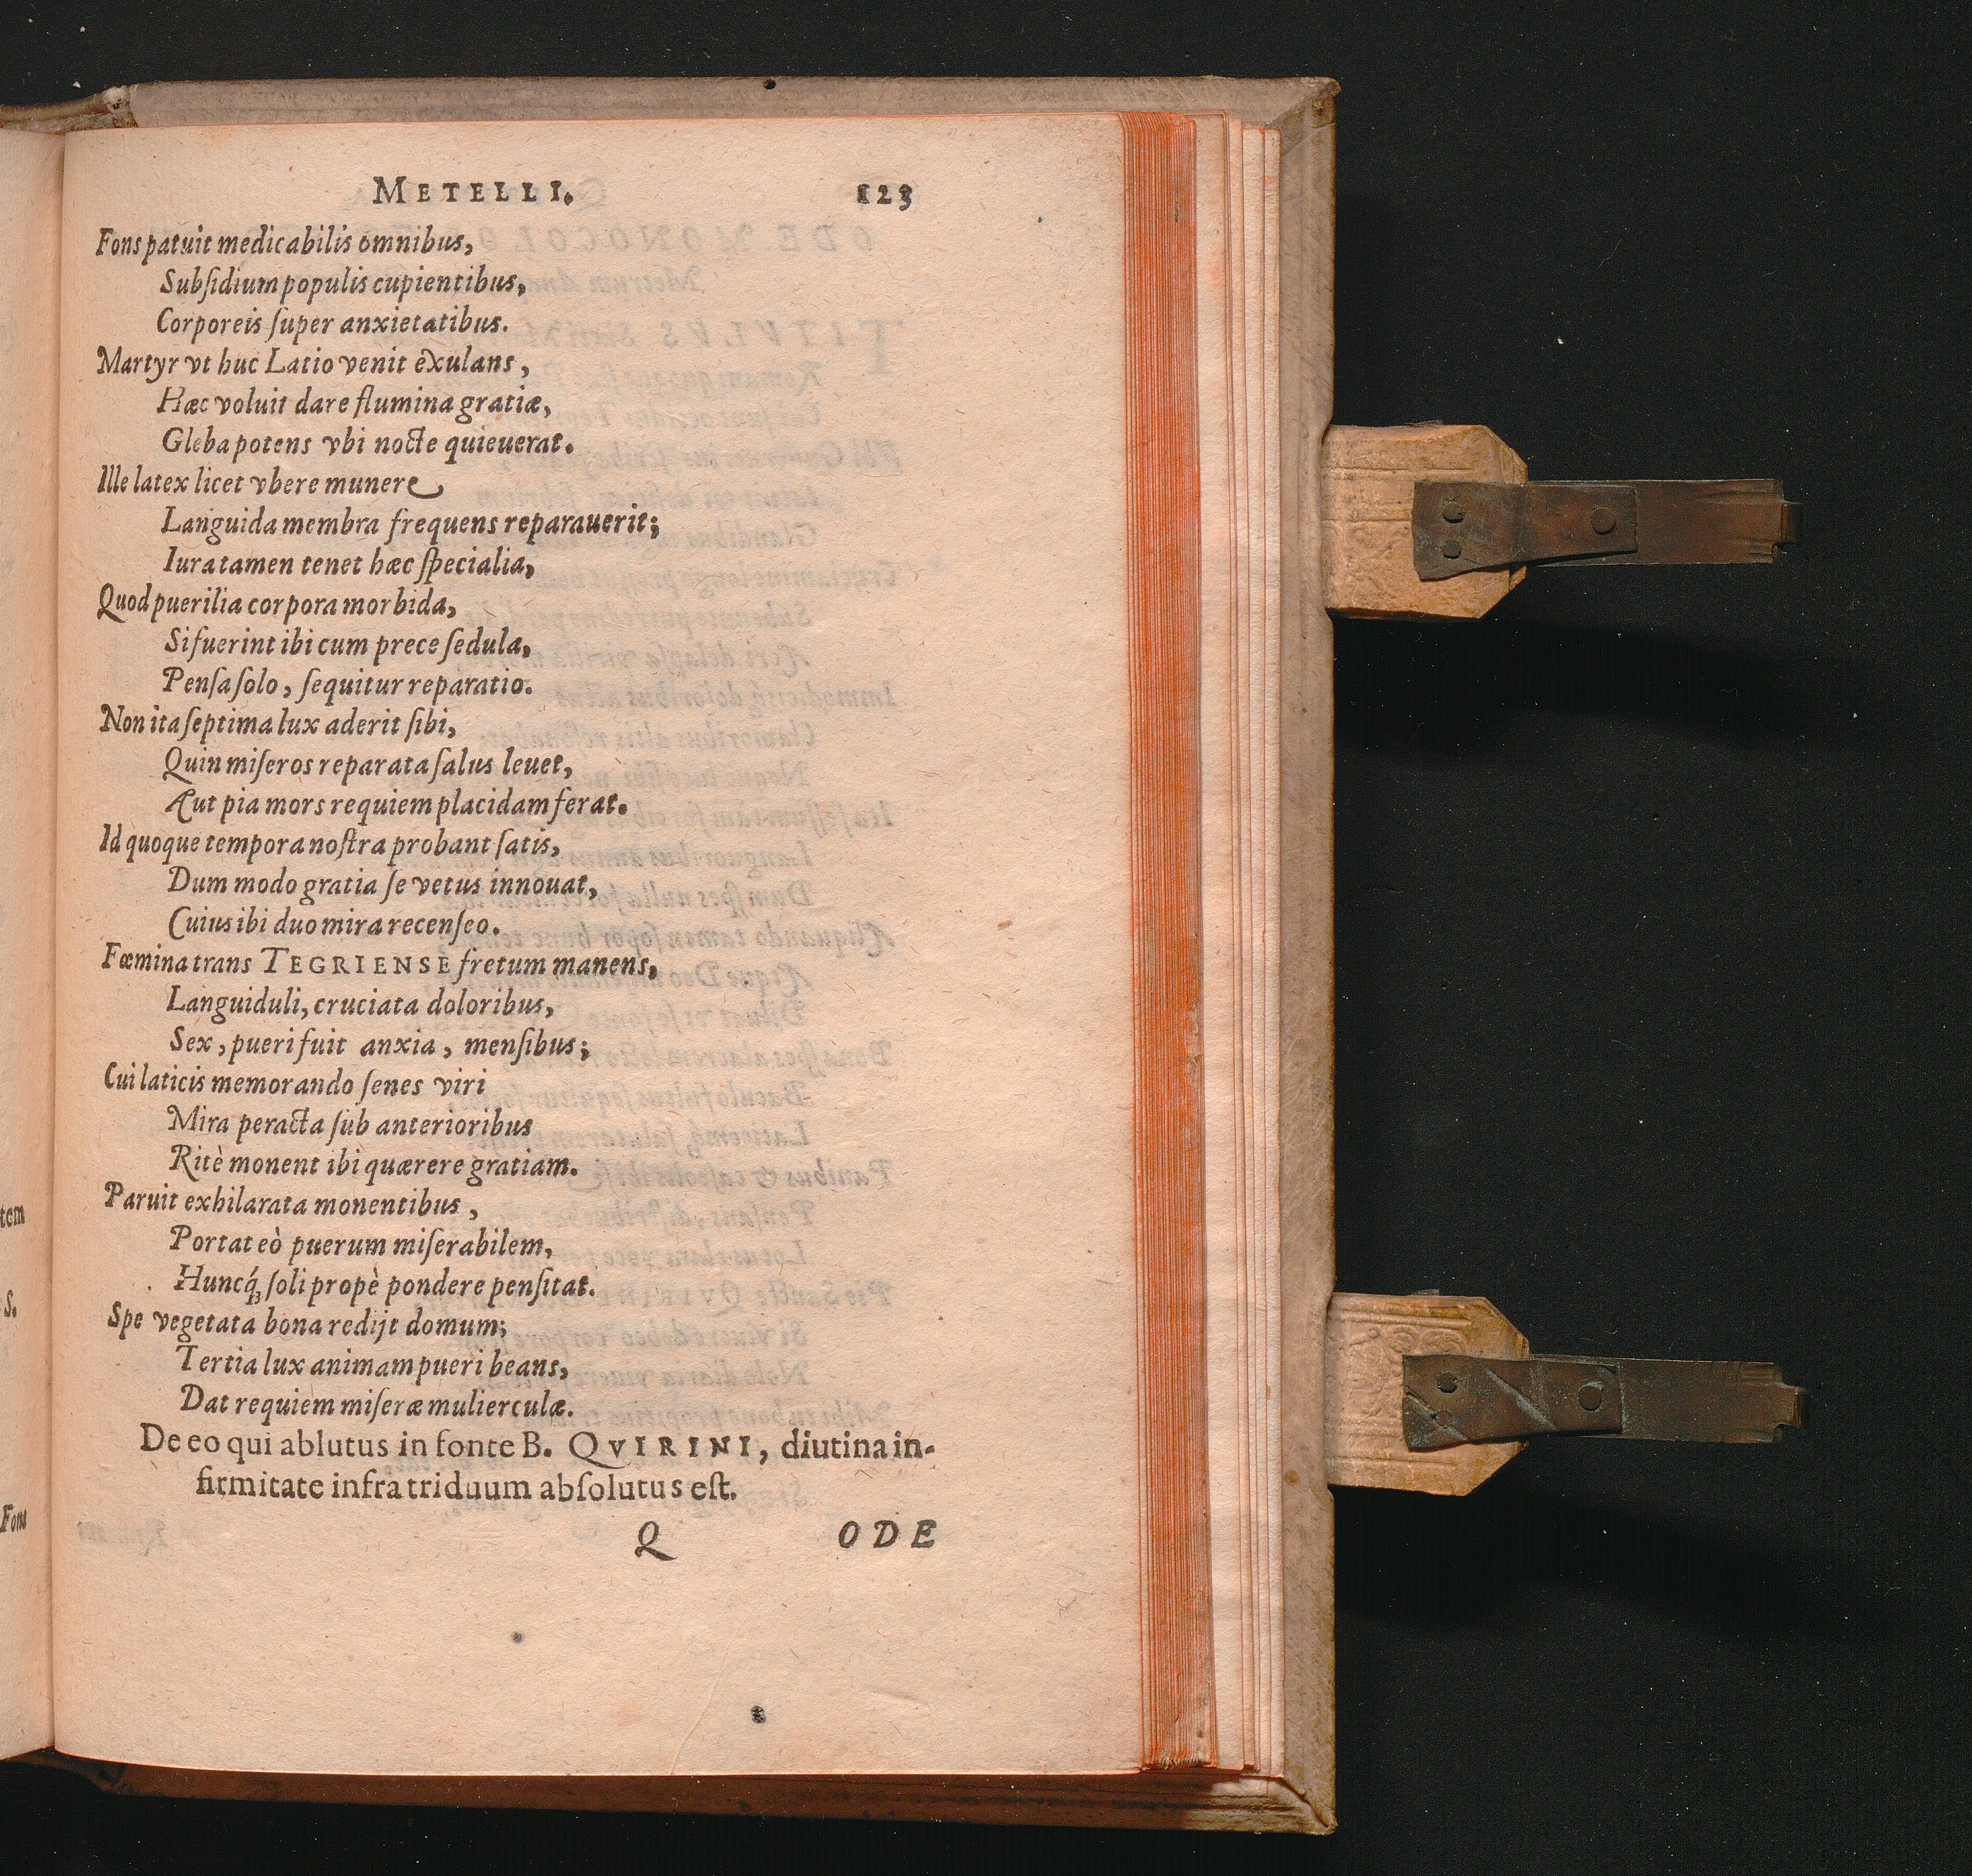 METELLI. 123
Fons patuit medicabilis omnibus,
Subſidium populis cupientibus,
Corporeis ſuper anxietatibus.
Martyr vt huc Latio venit exulans,
Hæc voluit dare flumina gratiæ,
Gleba potens vbi nocte quieuerat.
Ille latex licet vbere munere
Languida membra frequens reparauerit;
Iura tamen tenet hæc ſpecialia,
Quod puerilia corpora morbida,
Si fuerint ibi cum prece ſedula,
Penſa ſolo, ſequitur reparatio.
Non ita ſeptima lux aderit ſibi,
Quin miſeros reparata ſalus leuet,
Aut pia mors requiem placidam ferat.
Id quoque tempora noſtra probant ſatis,
Dum modo gratia ſe vetus innouat,
Cuius ibi duo mira recenſeo.
Fœmina trans TEGRIENSE fretum manens,
Languiduli, cruciata doloribus,
Sex, pueri fuit anxia, menſibus;
Cui laticis memorando ſenes viri
Mira peracta ſub anterioribus
Ritè monent ibi quærere gratiam.
Paruit exhilarata monentibus,
Portat eò puerum miſerabilem,
Huncq́ꝫ ſoli propè pondere penſitat.
Spe vegetata bona redijt domum;
Tertia lux animam pueri beans,
Dat requiem miſeræ mulierculæ.
De eo qui ablutus in fonte B. QVIRINI, diutina in-
firmitate infra triduum abſolutus eſt.
Q ODE
tem
S.
Fons